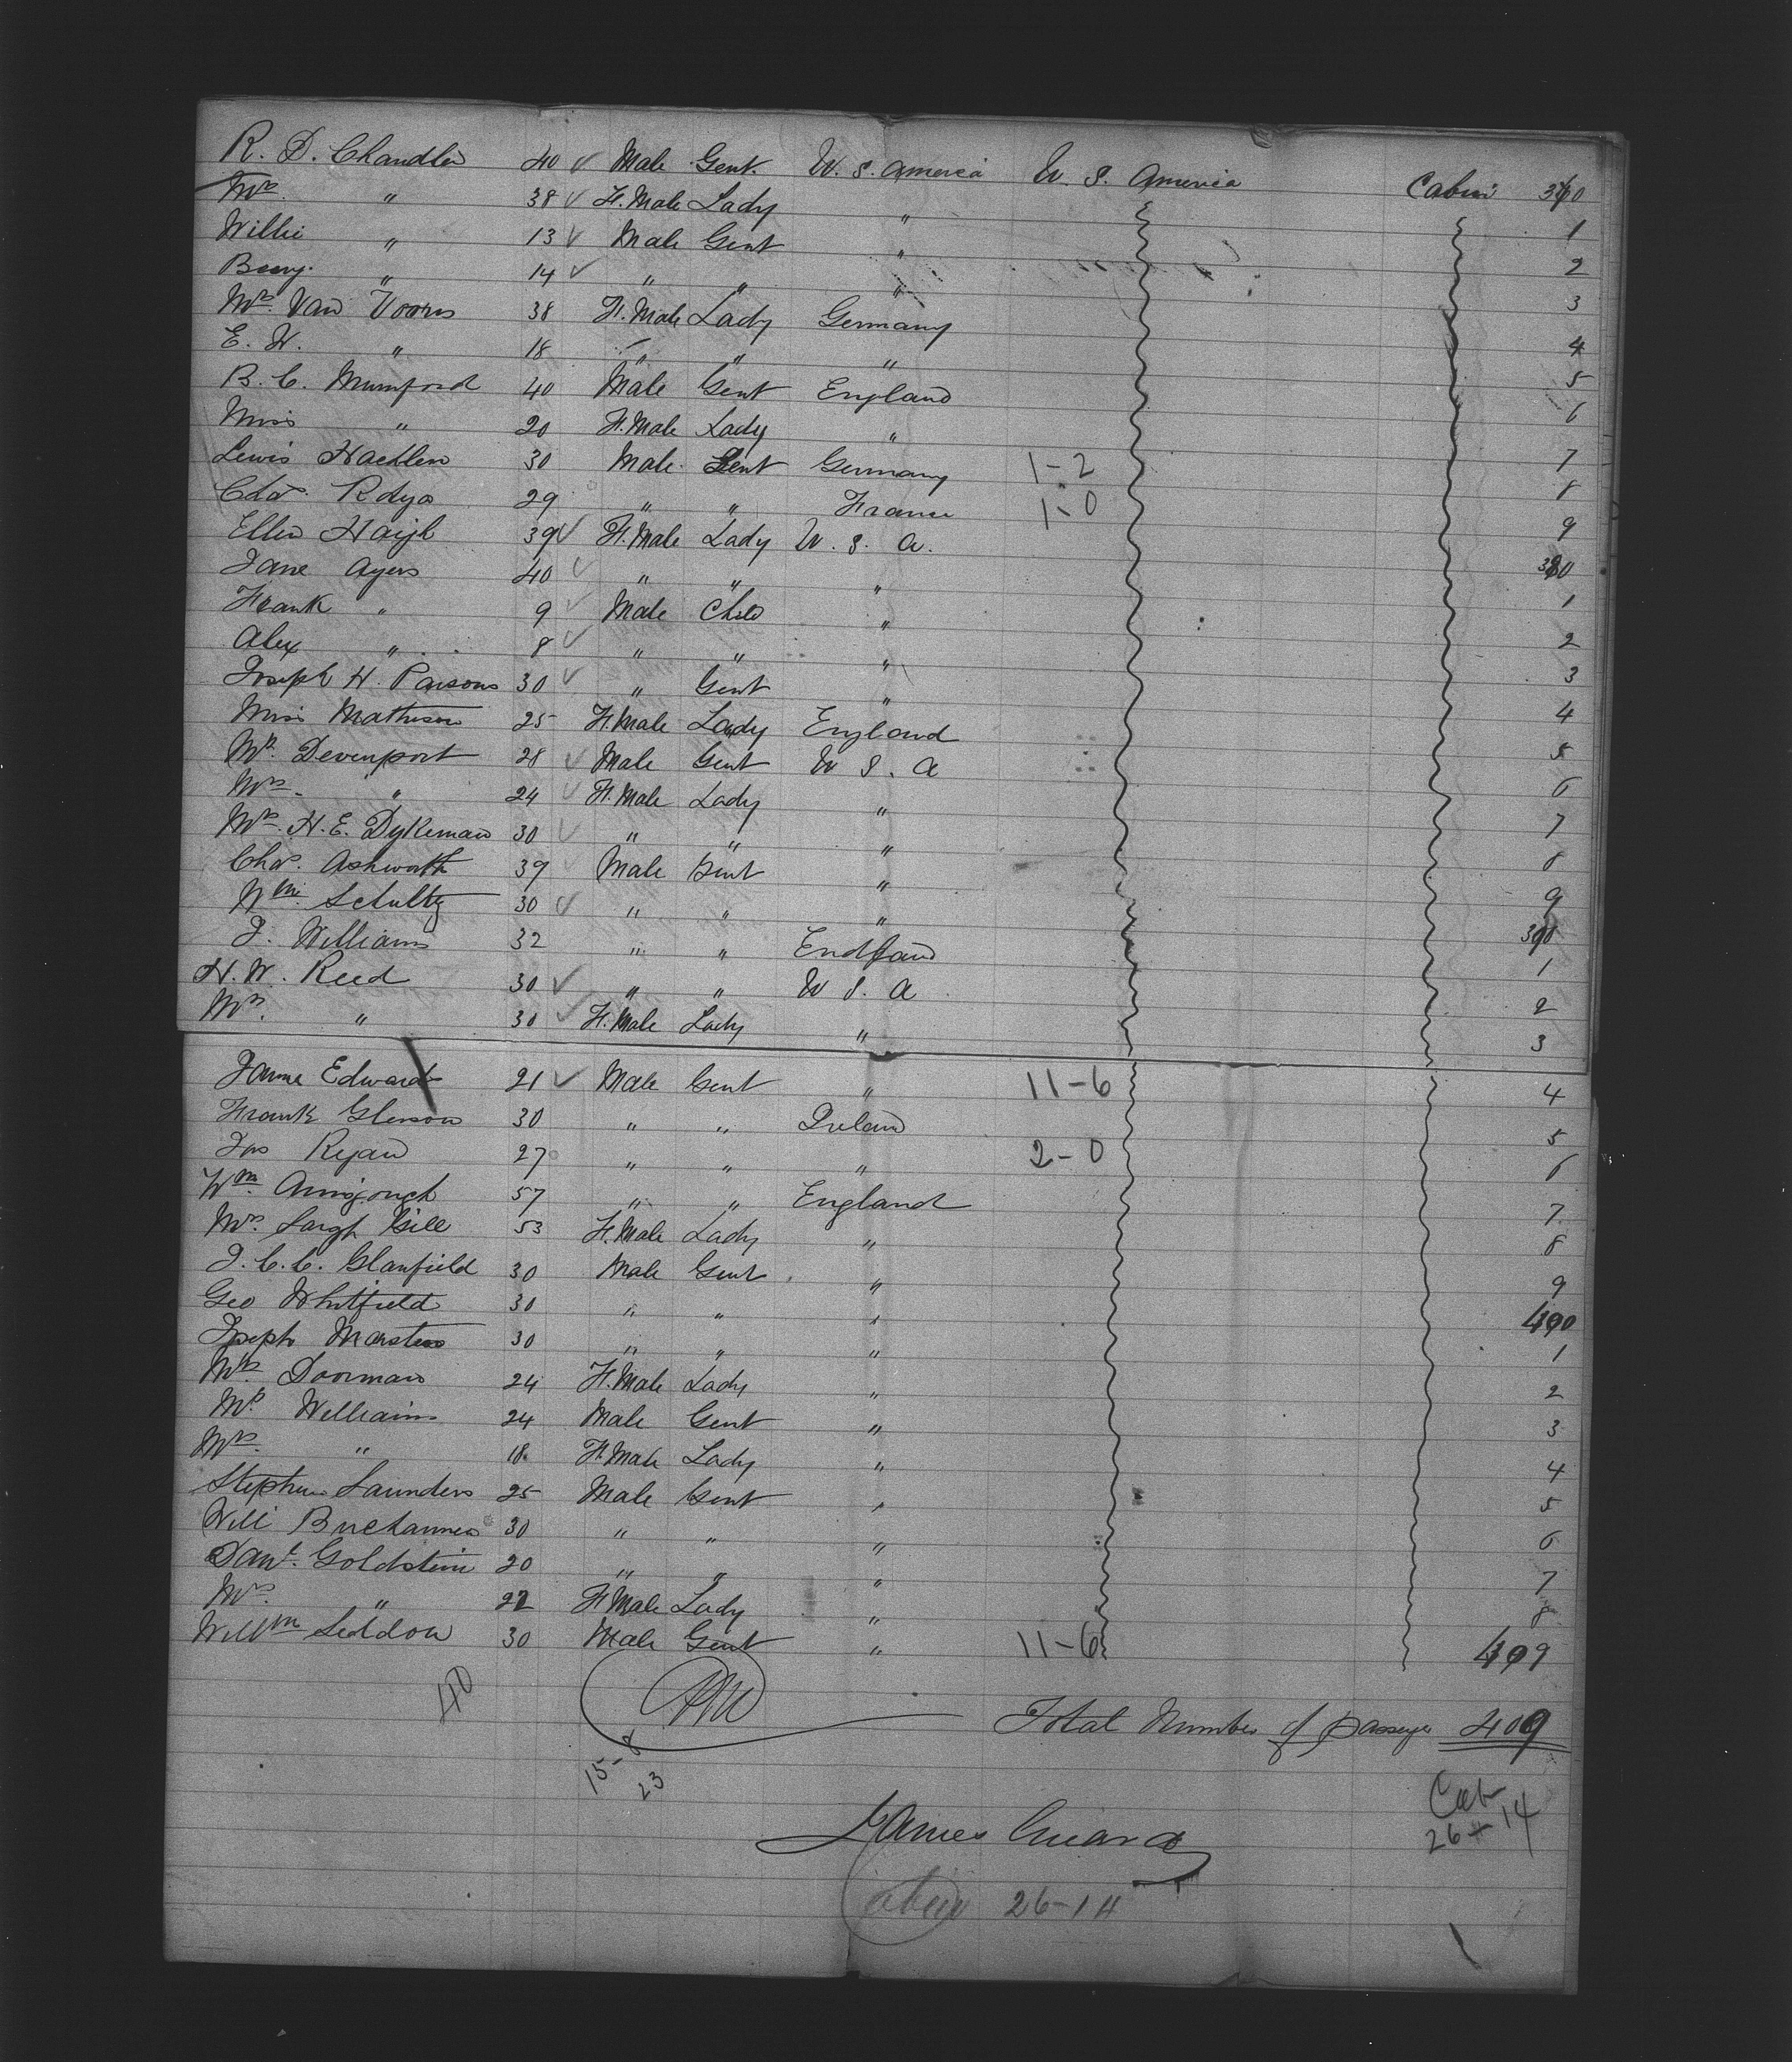 R. D. Chandler 40 ✓ Male Gent. U. S. America U. S. America Cabin 370
Mrs. " 38 ✓ F. Male Lady " 1
Willie " 13 ✓ Male Gent " 2
" 14 ✓ " " " 3
Mrs. Van Vooris 38 F. Male Lady Germany 4
E. H. " 18 " " " 5
B. C. Mumford 40 Male Gent England 6
Miss " 20 F. Male Lady " 7
Lewis Haehlen 30 Male Gent Germany 1-2 8
29 " " France 1-0 9
Ellen Haigh 39 ✓ F. Male Lady U. S. A. 380
Jane Ayers 40 ✓ " " " 1
Frank " 9 ✓ Male Child " 2
Alex " 8 ✓ " " " 3
Joseph H. Parsons 30 ✓ " Gent " 4
Miss Mathison 25 F. Male Lady England 5
Mr. Devenport 28 ✓ Male Gent U S. A 6
Mrs. " 24 ✓ F. Male Lady " 7
Mrs. H. E. Dykeman 30 ✓ " " " 8
Chas. Ashworth 39 ✓ Male Gent " 9
Wm. Schultz 30 ✓ " " " 390
J. Williams 32 " " England 1
H. W. Reed 30 ✓ " " U S. A 2
Mrs. " 30 ✓ F. Male Lady " 3
Edward 21 ✓ Male Gent " 11-6 4
Frank Gleeson 30 " " Ireland 5
Jas Ryan 27 " " " 2-0 6
Wm. 57 " " England 7
Mrs. Gill 53 F. Male Lady " 8
J. C. C. Glanfield 30 Male Gent " 9
Geo Whitfield 30 " " " 400
Joseph Marsters 30 " " " 1
Mrs. Doorman 24 F. Male Lady " 2
Mr. Williams 24 Male Gent " 3
Mrs. " 18 F. Male Lady " 4
Stephen Saunders 25 Male Gent " 5
Will Buchannen 30 " " " 6
Danl. Goldstein 20 " " " 7
Mrs. " 22 F. Male Lady " 8
Willm Seddon 30 Male Gent " 11-6 409
40
Total Number of passengers 409
15-8
23
Cab
26+14
James
Cabin 26-14